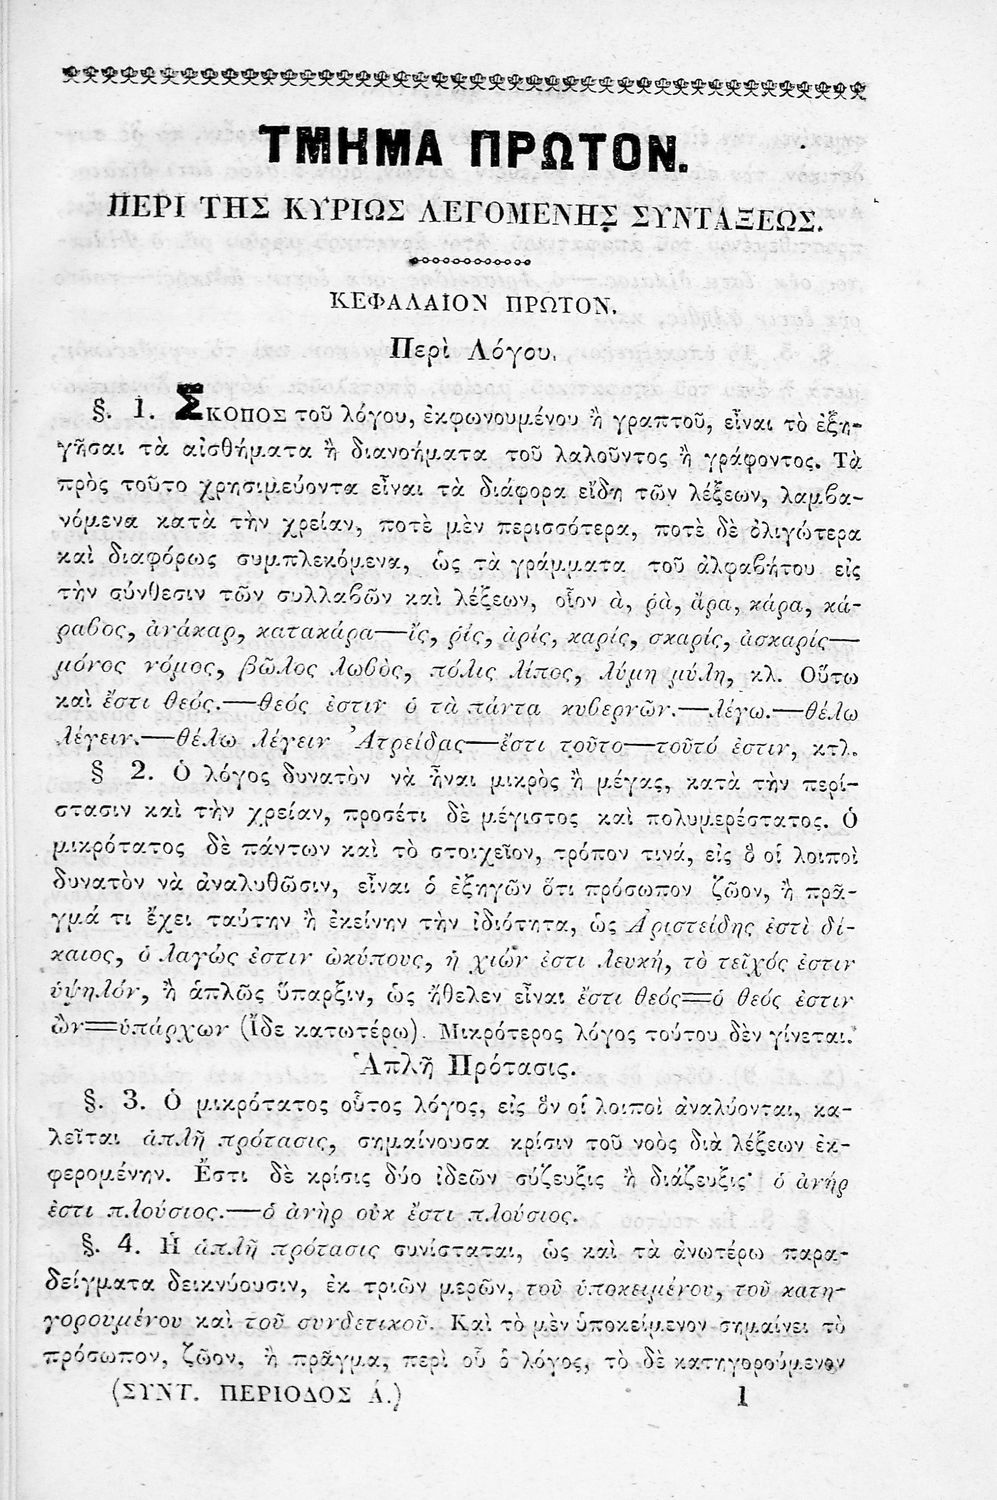 ΤΜΗΜΑ ΠΡΩΤΟΝ.
ΠΕΡΙ ΤΗΣ ΚΥΡΙΩΣ ΛΕΓΟΜΕΝΗΣ ΣΥΝΤΑΞΕΩΣ.
ΚΕΦΑΛΑΙΟΝ ΠΡΩΤΟΝ.
Περὶ Λόγου.
§. 1. ΣΚΟΠΟΣ τοῦ λόγου, ἐκφωνουμένου ἢ γραπτοῦ, εἶναι τὸ ἐξη-
γῆσαι τὰ αἰσθήματα ἢ διανοήματα τοῦ λαλοῦντος ἢ γράφοντος. Τὰ
πρὸς τοῦτο χρησιμεύοντα εἶναι τὰ διάφορα εἴδη τῶν λέξεων, λαμβα-
νόμενα κατὰ τὴν χρείαν, ποτὲ μὲν περισσότερα, ποτὲ δὲ ὀλιγώτερα
καὶ διαφόρως συμπλεκόμενα, ὡς τὰ γράμματα τοῦ ἀλφαβήτου εἰς
τὴν σύνθεσιν τῶν συλλαβῶν καὶ λέξεων, οἷον ἀ, ῥὰ, ἄρα, κάρα, κά-
ραβος, ἀνάκαρ, κατακάρα—ἴς, ῥίς, ἀρίς, καρίς, σκαρίς, ἀσκαρίς—
μόνος νόμος, βῶλος λωβὸς, πόλις λίπος, λύμη μύλη, κλ. Οὕτω
καὶ ἔστι θεός.—θεός ἐστιν ὁ τὰ πάντα κυβερνῶν.—λέγω.—θέλω
λέγειν.—θέλω λέγειν Ἀτρείδας—ἔστι τοῦτο—τοῦτό ἐστιν, κτλ.
§ 2. Ὁ λόγος δυνατὸν νὰ ἦναι μικρὸς ἢ μέγας, κατὰ τὴν περί-
στασιν καὶ τὴν χρείαν, προσέτι δὲ μέγιστος καὶ πολυμερέστατος. Ὁ
μικρότατος δὲ πάντων καὶ τὸ στοιχεῖον, τρόπον τινά, εἰς ὃ οἱ λοιποὶ
δυνατὸν νὰ ἀναλυθῶσιν, εἶναι ὁ ἐξηγῶν ὅτι πρόσωπον ζῶον, ἢ πρᾶ-
γμά τι ἔχει ταύτην ἢ ἐκείνην τὴν ἰδιότητα, ὡς Ἀριστείδης ἐστὶ δί-
καιος, ὁ λαγώς ἐστιν ὠκύπους, ἡ χιών ἐστι λευκή, τὸ τεῖχός ἐστιν
ὑψηλόν, ἢ ἁπλῶς ὕπαρξιν, ὡς ἤθελεν εἶναι ἔστι θεός=ὁ θεός ἐστιν
ὢν=ὑπάρχων (Ἴδε κατωτέρω). Μικρότερος λόγος τούτου δὲν γίνεται.
Ἁπλῆ Πρότασις.
§. 3. Ὁ μικρότατος οὗτος λόγος, εἰς ὃν οἱ λοιποὶ ἀναλύονται, κα-
λεῖται ἁπλῆ πρότασις, σημαίνουσα κρίσιν τοῦ νοὸς διὰ λέξεων ἐκ-
φερομένην. Ἔστι δὲ κρίσις δύο ἰδεῶν σύζευξις ἢ διάζευξις· ὁ ἀνήρ
ἐστι πλούσιος.—ὁ ἀνὴρ οὐκ ἔστι πλούσιος.
§. 4. Ἡ ἁπλῆ πρότασις συνίσταται, ὡς καὶ τὰ ἀνωτέρω παρα-
δείγματα δεικνύουσιν, ἐκ τριῶν μερῶν, τοῦ ὑποκειμένου, τοῦ κατη-
γορουμένου καὶ τοῦ συνδετικοῦ. Καὶ τὸ μὲν ὑποκείμενον σημαίνει τὸ
πρόσωπον, ζῶον, ἢ πρᾶγμα, περὶ οὗ ὁ λόγος, τὸ δὲ κατηγορούμενον
(ΣΥΝΤ. ΠΕΡΙΟΔΟΣ Ά.) 1